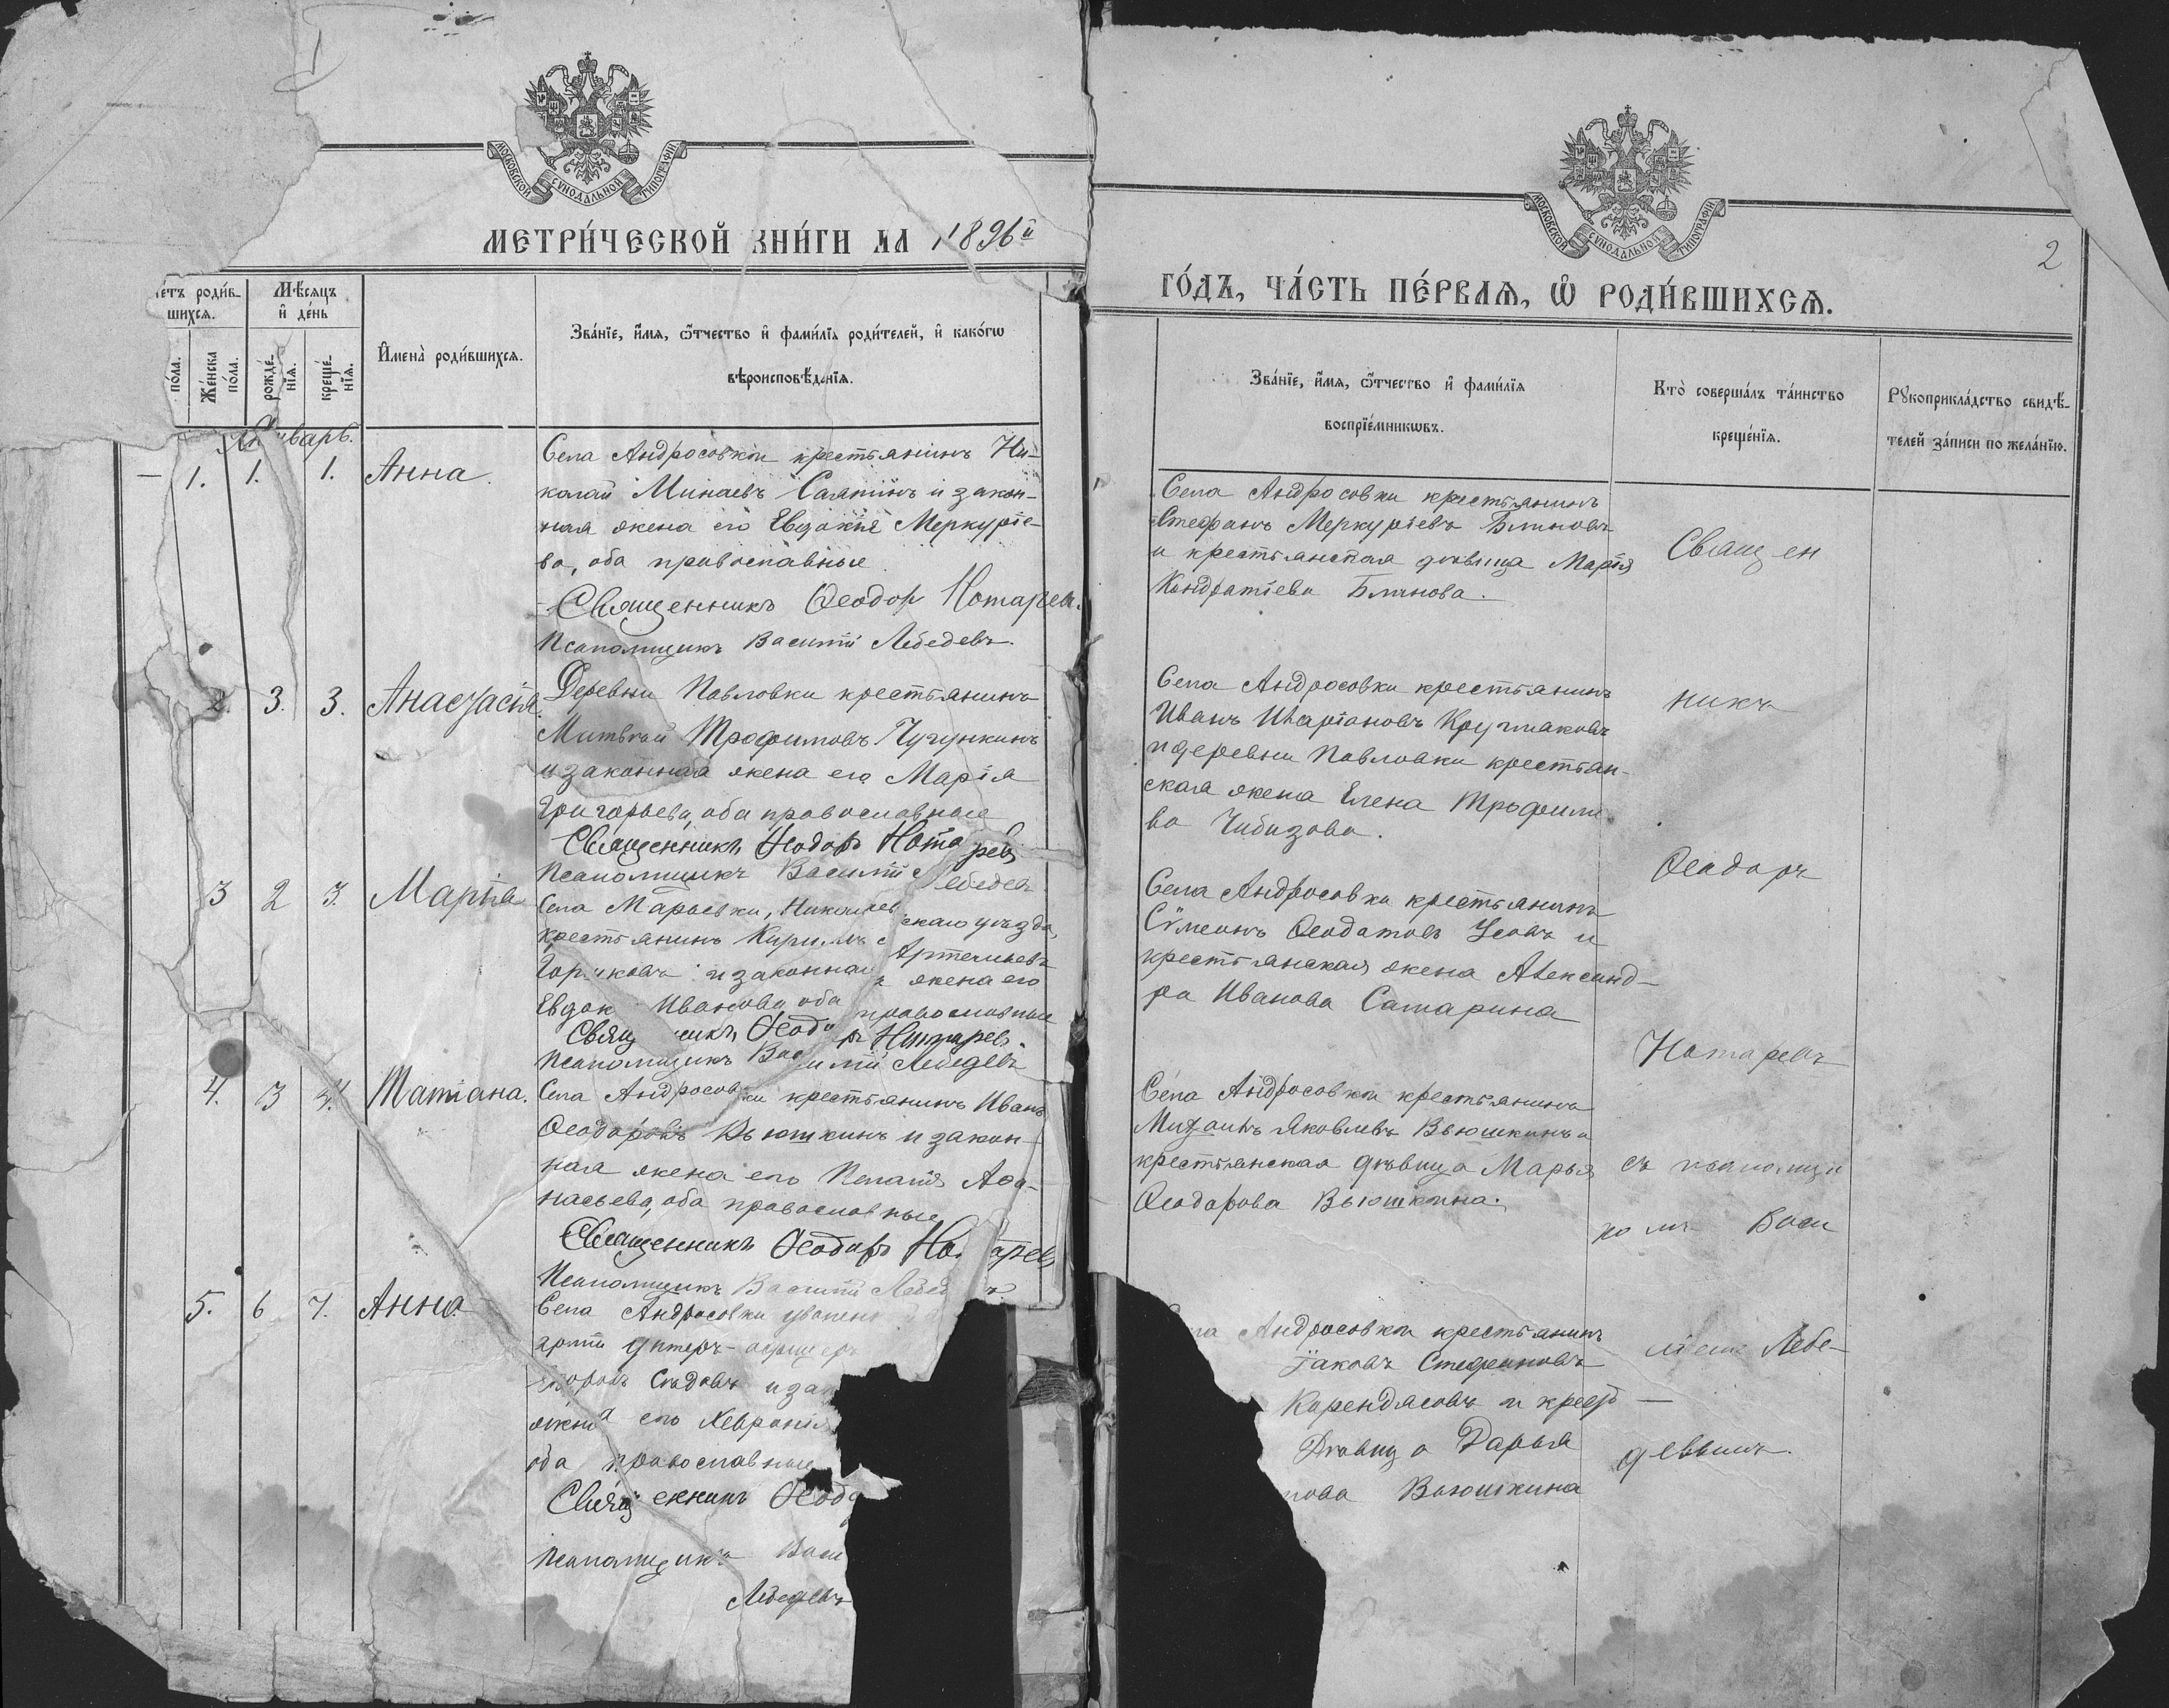 МОСКОВСКОЙ СѴНОДАЛЬНОЙ ТИПОГРАФІИ
МЕТРИ́ЧЕСКОЙ КНИ́ГИ НА 1896й
шихся.
Мѣ́сяцъ и҆ де́нь
по́ла.
Же́нска по́ла.
рожде́нїѧ.
креще́нїѧ.
И҆мена̀ роди́вшихсѧ.
Зва́нїе, и҆́мѧ, ѻ҆́тчество и҆ фами́лїѧ роди́телей, и҆ како́гѡ
вѣроисповѣ́данїѧ.
Январь.
1. 1. 1. Анна.
Села Андросовки крестьянинъ Ни-
колай Минаевъ и закон-
ная жена его Евдокія Меркуріе-
ва, оба православные.
Священникъ Ѳеодоръ Нотаревъ.
Псаломщикъ Василій Лебедевъ.
2. 3. 3. Анастасія
Деревни Павловки крестьянинъ
Матвей Трофимовъ Чугункинъ
и законная жена его Марія
Григорьева, оба православные
Священникъ Ѳеодоръ Нотаревъ
Псаломщикъ Василій Лебедевъ
3 2 3. Марія
Села Марьевки, Николаевскаго уѣзда,
крестьянинъ Кириллъ Артемьевъ
и законная жена его
Евдок Иванова, оба православные
Священникъ Ѳеодоръ Нотаревъ.
Псаломщикъ Василій Лебедевъ
4. 3 4. Татіана.
Села Андросовки крестьянинъ Иванъ
Ѳеодоровъ Вьюшкинъ и закон-
ная жена его Пелагія Аѳа-
насьева, оба православные
Священникъ Ѳеодоръ Но аревъ
Псаломщикъ Василій Лебед
5. 6 7. Анна.
Села Андросовки уволен
арміи унтеръ-офицеръ
Сѣдовъ и за
жена его Хевронія
оба православные
Священникъ Ѳеодо
Псаломщикъ Васи
Лебедевъ
МОСКОВСКОЙ СѴНОДАЛЬНОЙ ТИПОГРАФІИ
2
ГО́ДЪ, ЧА́СТЬ ПЕ́РВАѦ, Ѡ҆ РОДИ́ВШИХСѦ.
Зва́нїе, и҆́мѧ, ѻ҆́тчество и҆ фами́лїѧ
воспрїе́мникѡвъ.
Кто̀ соверша́лъ та́инство
креще́нїѧ.
Рꙋкоприкла́дство свидѣ́-
телей за́писи по жела́нїю.
Села Андросовки крестьянинъ
Стефанъ Меркуріевъ Блиновъ
и крестьянская дѣвица Марія
Кондратіева Блинова.
Села Андросовки крестьянинъ
Иванъ
и деревни Павловки крестьян-
ская жена Елена Трофимо
ва Чибизова.
Села Андросовки крестьянинъ
Сѵмеонъ Ѳеодотовъ Усовъ и
крестьянская жена Александ-
ра Иванова Сатарина
Села Андросовки крестьянинъ
Михаилъ Яковлевъ Вьюшкинъ и
крестьянская дѣвица Марья
Ѳеодорова Вьюшкина.
Андросовки крестьянинъ
Іаковъ Стефановъ
Карендясовъ и крест
Дѣвица Дарья
нова Вьюшкина
Священ
никъ
Ѳеодоръ
Нотаревъ
съ псаломщи
комъ Васи
ліемъ Лебе-
девымъ.